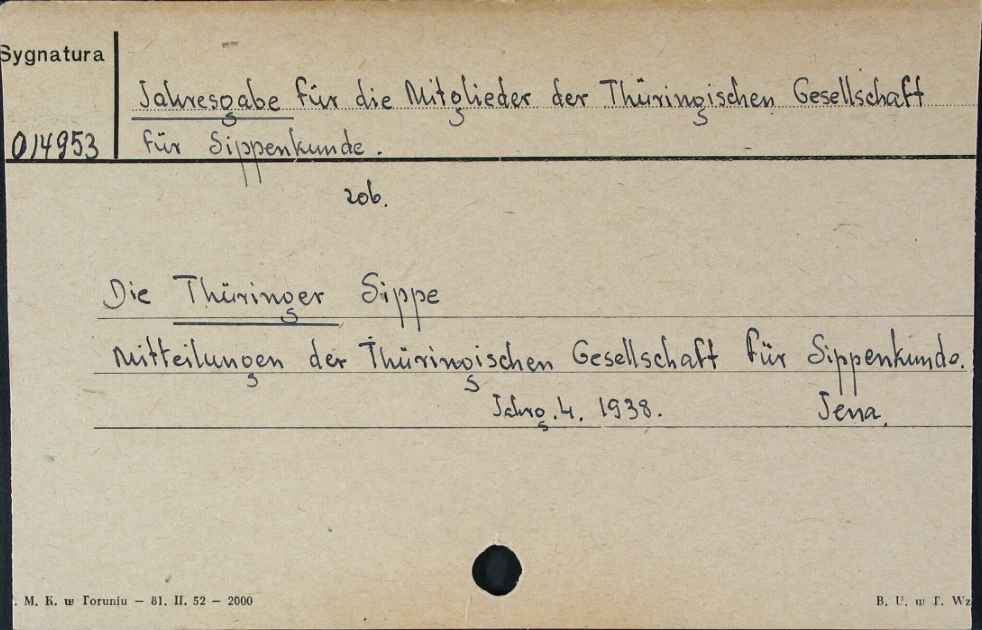 Sygnatura
Jahresgabe für die Mitglieder der Thüringischen Gesellschaft
014953 für Sippenkunde.
zob.
Die Thüringer Sippe
Mitteilungen der Thüringischen Gesellschaft für Sippenkunde.
Jahrg. 4. 1938. Jena.
. M. K. w Toruniu – 81. II. 52 – 2000 B. U. w T. Wz